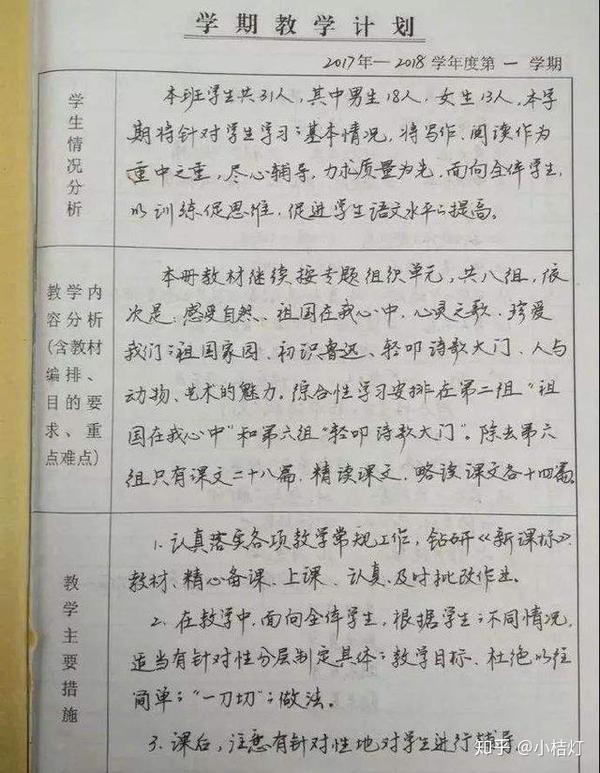 学期教学计划
2017年—2018学年度第一学期
学生情况分析
本班学生共31人，其中男生18人，女生13人，本学
期将针对学生学习的基本情况，将写作、阅读作为
重中之重，尽心辅导，力求质量为先，面向全体学生，
以训练促思维，促进学生语文水平的提高。
教学内
容分析
(含教材
编排、
目的要
求、重
点难点)
本册教材继续按专题组织单元，共八组，依
次是：感受自然、祖国在我心中、心灵之歌、珍爱
我们的祖国家园、初识鲁迅、轻叩诗歌大门、人与
动物、艺术的魅力。综合性学习安排在第二组“祖
国在我心中”和第六组“轻叩诗歌大门”。除去第六
组只有课文二十八篇，精读课文、略读课文各十四篇。
教学主要措施
1. 认真落实各项教学常规工作，钻研《新课标》
教材、精心备课、上课、认真、及时批改作业。
2. 在教学中，面向全体学生，根据学生的不同情况，
适当有针对性分层制定具体的教学目标、杜绝以往
简单的“一刀切”的做法。
3. 课后，注意有针对性地对学生进行辅导
知乎 @小桔灯